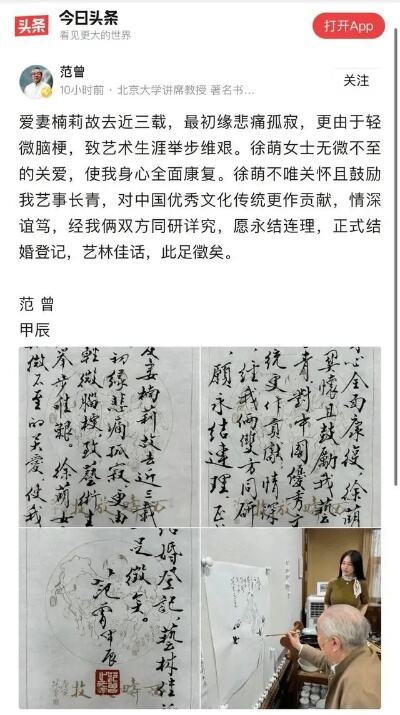 头条
今日头条
看见更大的世界
打开App
范曾
10小时前 · 北京大学讲席教授 著名书...
关注
爱妻楠莉故去近三载，最初缘悲痛孤寂，更由于轻
微脑梗，致艺术生涯举步维艰。徐萌女士无微不至
的关爱，使我身心全面康复。徐萌不唯关怀且鼓励
我艺事长青，对中国优秀文化传统更作贡献，情深
谊笃，经我俩双方同研详究，愿永结连理，正式结
婚登记，艺林佳话，此足徵矣。
范 曾
甲辰
妻楠莉故去近三载
初缘悲痛孤寂更由
轻微脑梗致艺術生
举步維艰徐萌女
微不至的关爱使我
心全面康復徐萌
関懷且鼓勵我藝
青對中國優秀
統更作貢獻情深
經我倆雙方同研
願永结連理正
结婚登記藝林佳
足徵矣。
范曾甲辰